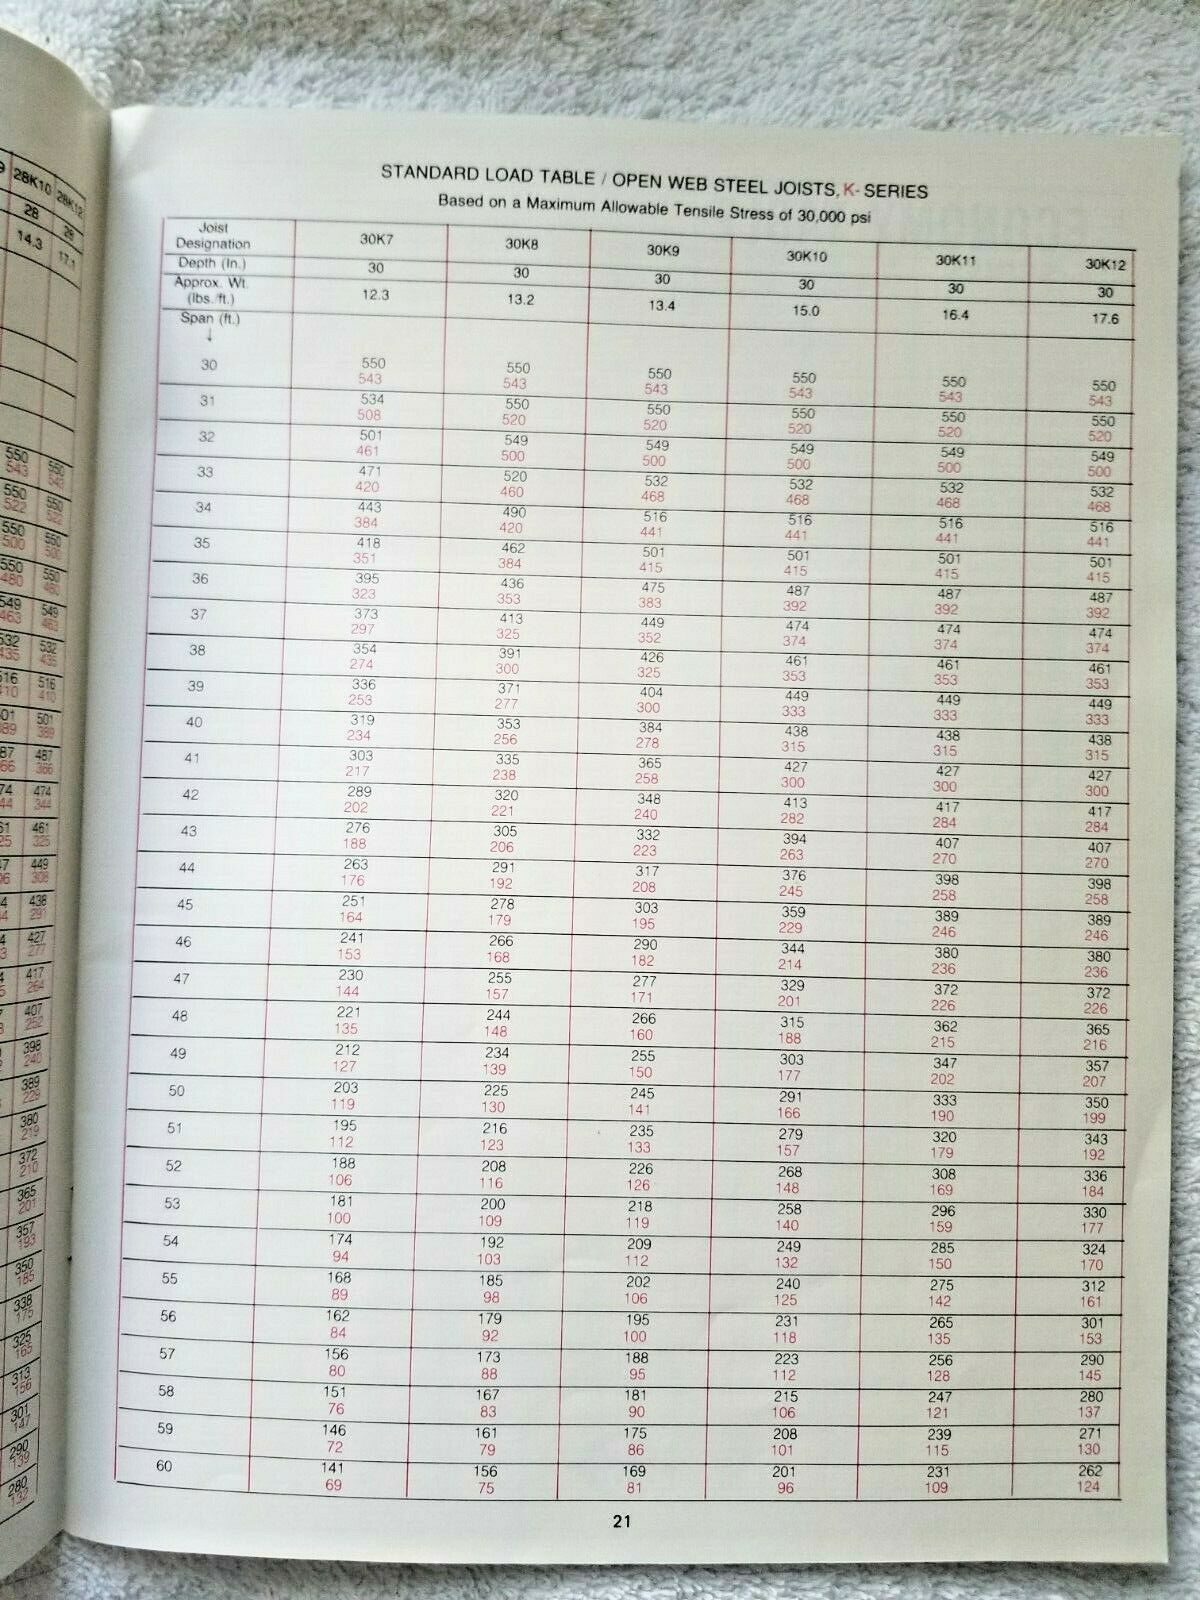 28K10 28K12
28 28
14.3 17.1
550 550
543 543
550 550
522 522
550 550
500 500
550 550
480 480
549 549
463 463
532 532
435 435
516 516
410 410
501
389
487
366
474
344
461
325
449
308
438
291
427
277
417
264
407
252
398
240
389
229
380
219
372
210
365
201
357
193
350
185
338
175
325
165
313
156
301
147
290
139
280
132
STANDARD LOAD TABLE / OPEN WEB STEEL JOISTS, K- SERIES
Based on a Maximum Allowable Tensile Stress of 30,000 psi
Joist
Designation 30K7 30K8 30K9 30K10 30K11 30K12
Depth (In.) 30 30 30 30 30 30
Approx. Wt.
(lbs./ft.) 12.3 13.2 13.4 15.0 16.4 17.6
Span (ft.)
↓
30 550 550 550 550 550 550
543 543 543 543 543 543
31 534 550 550 550 550 550
508 520 520 520 520 520
32 501 549 549 549 549 549
461 500 500 500 500 500
33 471 520 532 532 532 532
420 460 468 468 468 468
34 443 490 516 516 516 516
384 420 441 441 441 441
35 418 462 501 501 501 501
351 384 415 415 415 415
36 395 436 475 487 487 487
323 353 383 392 392 392
37 373 413 449 474 474 474
297 325 352 374 374 374
38 354 391 426 461 461 461
274 300 325 353 353 353
39 336 371 404 449 449 449
253 277 300 333 333 333
40 319 353 384 438 438 438
234 256 278 315 315 315
41 303 335 365 427 427 427
217 238 258 300 300 300
42 289 320 348 413 417 417
202 221 240 282 284 284
43 276 305 332 394 407 407
188 206 223 263 270 270
44 263 291 317 376 398 398
176 192 208 245 258 258
45 251 278 303 359 389 389
164 179 195 229 246 246
46 241 266 290 344 380 380
153 168 182 214 236 236
47 230 255 277 329 372 372
144 157 171 201 226 226
48 221 244 266 315 362 365
135 148 160 188 215 216
49 212 234 255 303 347 357
127 139 150 177 202 207
50 203 225 245 291 333 350
119 130 141 166 190 199
51 195 216 235 279 320 343
112 123 133 157 179 192
52 188 208 226 268 308 336
106 116 126 148 169 184
53 181 200 218 258 296 330
100 109 119 140 159 177
54 174 192 209 249 285 324
94 103 112 132 150 170
55 168 185 202 240 275 312
89 98 106 125 142 161
56 162 179 195 231 265 301
84 92 100 118 135 153
57 156 173 188 223 256 290
80 88 95 112 128 145
58 151 167 181 215 247 280
76 83 90 106 121 137
59 146 161 175 208 239 271
72 79 86 101 115 130
60 141 156 169 201 231 262
69 75 81 96 109 124
21